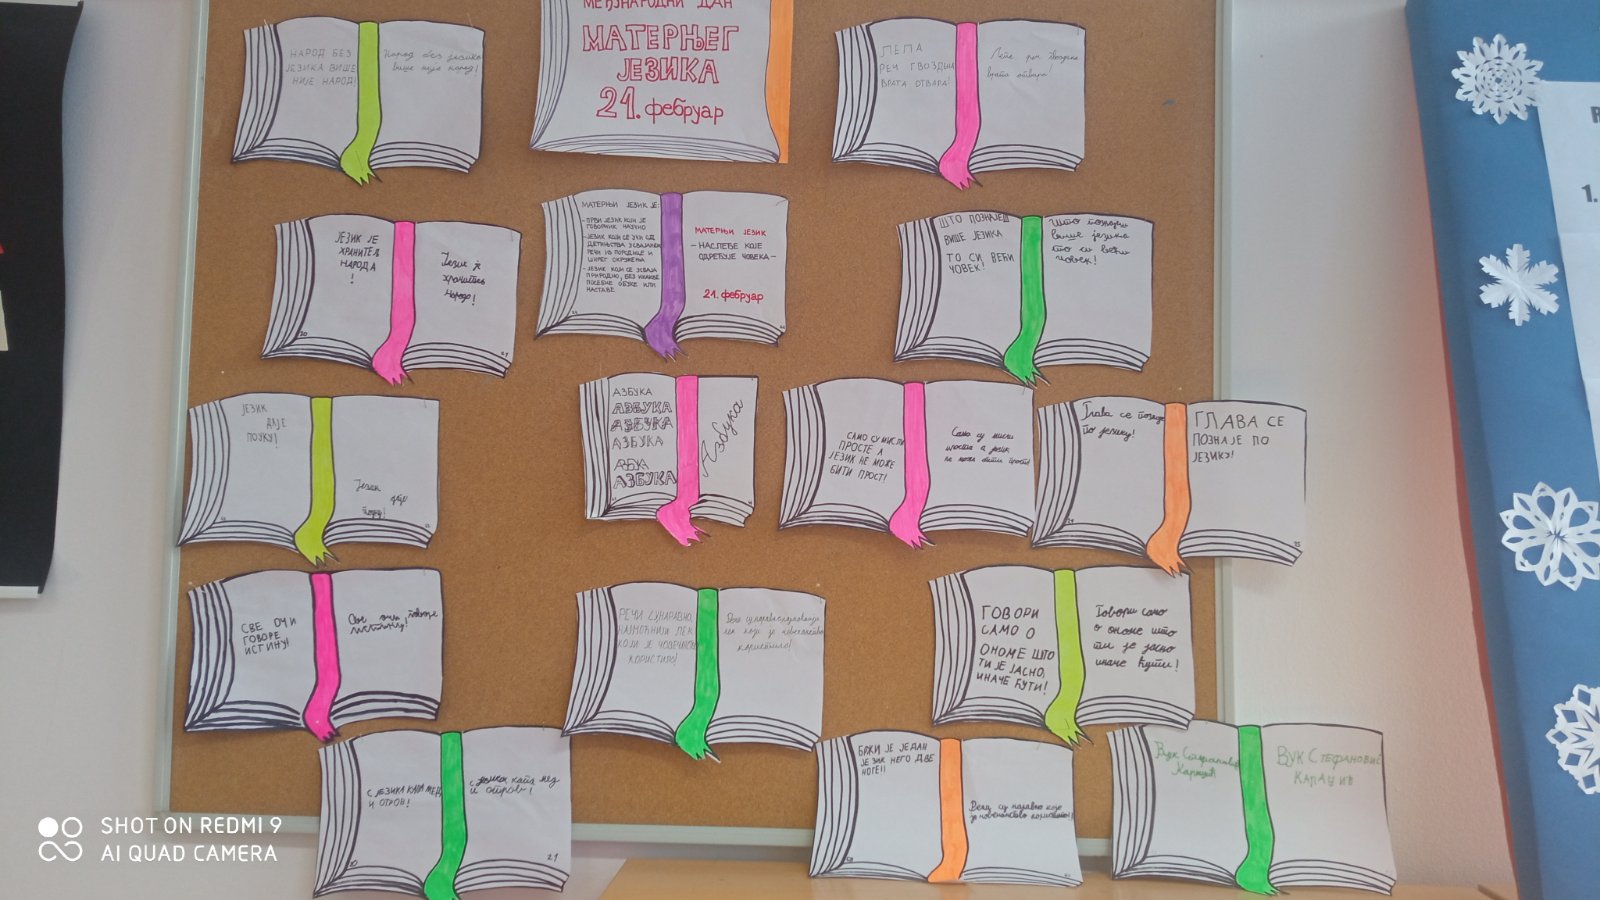 НАРОД БЕЗ
ЈЕЗИКА ВИШЕ
НИЈЕ НАРОД!
Народ без језика
више није народ!
МЕЂУНАРОДНИ ДАН
МАТЕРЊЕГ
ЈЕЗИКА
21. фебруар
ЛЕПА
РЕЧ ГВОЗДЕНА
ВРАТА ОТВАРА!
Лепа реч гвоздена
врата отвара!
ЈЕЗИК ЈЕ
ХРАНИТЕЉ
НАРОДА
!
Језик је
хранитељ
народа!
20
21
МАТЕРЊИ ЈЕЗИК ЈЕ:
- ПРВИ ЈЕЗИК КОЈИ ЈЕ
ГОВОРНИК НАУЧИО
- ЈЕЗИК КОЈИ СЕ УЧИ ОД
ДЕТИЊСТВА УСВАЈАЊЕМ
РЕЧИ ИЗ ПОРОДИЦЕ И
ШИРЕГ ОКРУЖЕЊА
- ЈЕЗИК КОЈИ СЕ УСВАЈА
ПРИРОДНО, БЕЗ ИКАКВЕ
ПОСЕБНЕ ОБУКЕ ИЛИ
НАСТАВЕ
МАТЕРЊИ ЈЕЗИК
- НАСЛЕЂЕ КОЈЕ
ОДРЕЂУЈЕ ЧОВЕКА -
21. фебруар
ШТО ПОЗНАЈЕШ
ВИШЕ ЈЕЗИКА
ТО СИ ВЕЋИ
ЧОВЕК!
више језика
то си већи
човек!
ЈЕЗИК
ДАЈЕ
ПОУКУ!
Језик
даје
поуку!
АЗБУКА
АЗБУКА
АЗБУКА
АЗБУКА
АЗБУКА
Азбука
САМО СУ МИСЛИ
ПРОСТЕ А
ЈЕЗИК НЕ МОЖЕ
БИТИ ПРОСТ!
Само су мисли
просте а језик
не може бити прост!
Глава се познаје
по језику!
ГЛАВА СЕ
ПОЗНАЈЕ ПО
ЈЕЗИКУ!
СВЕ ОЧИ
ГОВОРЕ
ИСТИНУ!
Све очи говоре
истину!
РЕЧИ СУ НАРАВНО,
НАЈМОЋНИЈИ ЛЕК
КОЈИ ЈЕ ЧОВЕЧАНСТВО
КОРИСТИЛО!
ГОВОРИ
САМО О
ОНОМЕ ШТО
ТИ ЈЕ ЈАСНО,
ИНАЧЕ ЋУТИ!
Говори само
о ономе што
ти је јасно
иначе ћути!
С ЈЕЗИКА КАПА МЕД
И ОТРОВ!
с језика капа мед
и отров!
20
21
БРЖИ ЈЕ ЈЕДАН
ЈЕЗИК НЕГО ДВЕ
НОГЕ!!
Вук Стефановић
Караџић
ВУК СТЕФАНОВИЋ
КАРАЏИЋ
R
1.
SHOT ON REDMI 9
AI QUAD CAMERA